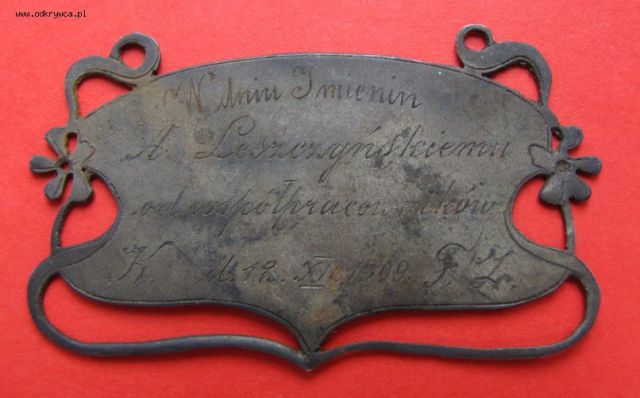 www.odkrywca.pl
W dniu Imienin
A. Leszczyńskiemu
od współpracowników
K. d. 12. XI. 1909. F. Z.